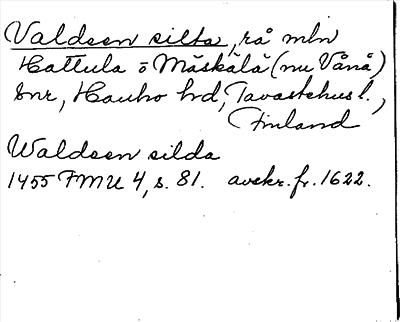 Valdsen silta, rå mln
Hattula o Mäskälä (nu Vånå)
snr, Hauho hd, Tavastehus l.,
Finland
Waldsen silda
1455 FMU 4, s. 81. avskr. fr. 1622.